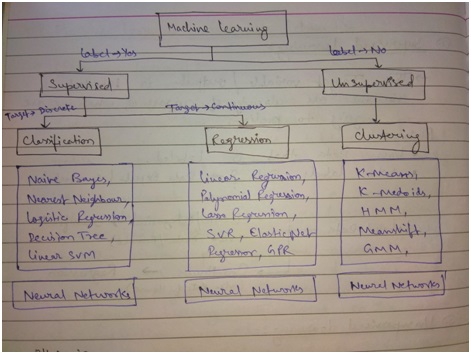 Machine Learning
Label→Yes
Label→No
Supervised
UnSupervised
Target→Discrete
Target→Continuous
Classification
Regression
Clustering
Naive Bayes,
Nearest Neighbour,
Logistic Regression,
Decision Tree,
Linear SVM
Linear Regression,
Polynomial Regression,
Lasso Regression,
SVR, ElasticNet
Regressor, GPR
K-Means,
K-Medoids,
HMM,
Meanshift,
GMM,
Neural Networks
Neural Networks
Neural Networks